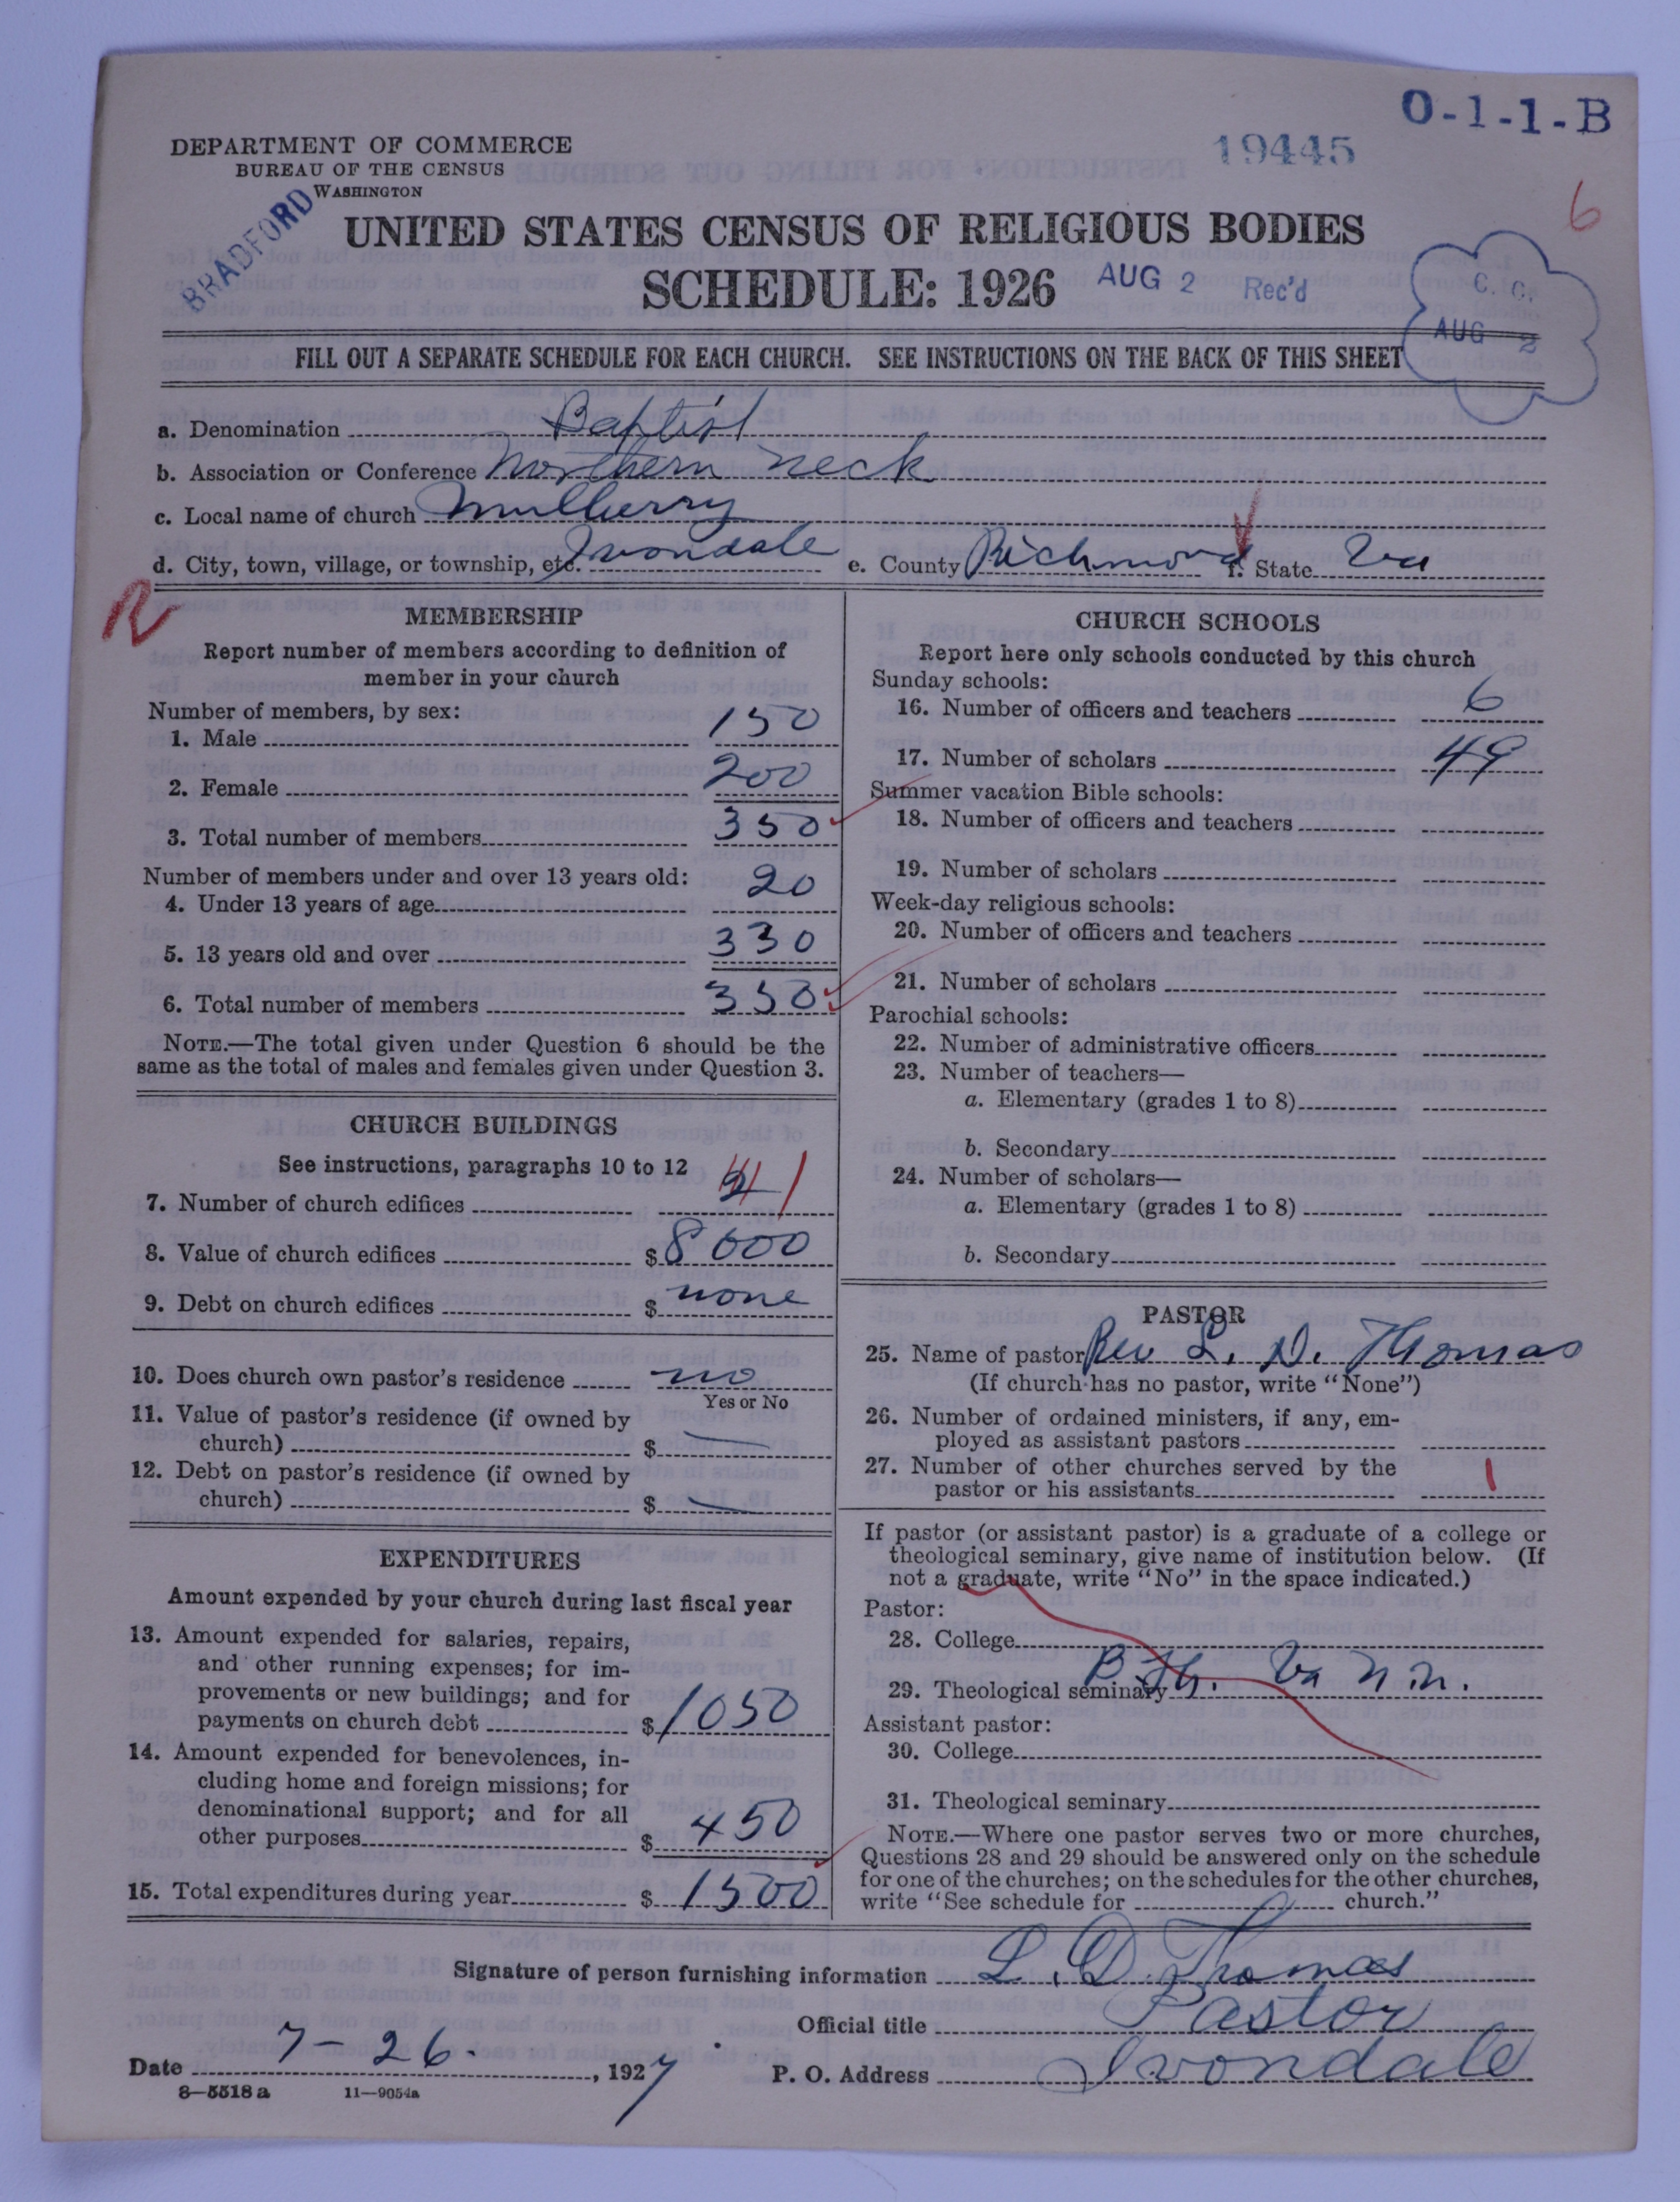 O-1-1-B
19445
DEPARTMENT OF COMMERCE
BUREAU OF THE CENSUS
WASHINGTON
BRADFORD
6
UNITED STATES CENSUS OF RELIGIOUS BODIES
SCHEDULE: 1926
AUG 2 Rec'd
C. C.
AUG 2
FILL OUT A SEPARATE SCHEDULE FOR EACH CHURCH. SEE INSTRUCTIONS ON THE BACK OF THIS SHEET
a. Denomination Baptist
b. Association or Conference Northern Neck
c. Local name of church Mulberry
d. City, town, village, or township, etc. Ivondale e. County Richmond f. State Va
R
MEMBERSHIP
Report number of members according to definition of
member in your church
Number of members, by sex:
1. Male 150
2. Female 200
3. Total number of members 350
Number of members under and over 13 years old:
4. Under 13 years of age 20
5. 13 years old and over 330
6. Total number of members 350
NOTE.—The total given under Question 6 should be the
same as the total of males and females given under Question 3.
CHURCH BUILDINGS
See instructions, paragraphs 10 to 12
7. Number of church edifices 1
8. Value of church edifices $ 8000
9. Debt on church edifices $ none
10. Does church own pastor's residence no
Yes or No
11. Value of pastor's residence (if owned by
church) $ —
12. Debt on pastor's residence (if owned by
church) $ —
EXPENDITURES
Amount expended by your church during last fiscal year
13. Amount expended for salaries, repairs,
and other running expenses; for im-
provements or new buildings; and for
payments on church debt $ 1050
14. Amount expended for benevolences, in-
cluding home and foreign missions; for
denominational support; and for all
other purposes $ 450
15. Total expenditures during year $ 1500
CHURCH SCHOOLS
Report here only schools conducted by this church
Sunday schools:
16. Number of officers and teachers 6
17. Number of scholars 49
Summer vacation Bible schools:
18. Number of officers and teachers
19. Number of scholars
Week-day religious schools:
20. Number of officers and teachers
21. Number of scholars
Parochial schools:
22. Number of administrative officers
23. Number of teachers—
a. Elementary (grades 1 to 8)
b. Secondary
24. Number of scholars—
a. Elementary (grades 1 to 8)
b. Secondary
PASTOR
25. Name of pastor Rev L. D. Thomas
(If church has no pastor, write "None")
26. Number of ordained ministers, if any, em-
ployed as assistant pastors
27. Number of other churches served by the
pastor or his assistants 1
If pastor (or assistant pastor) is a graduate of a college or
theological seminary, give name of institution below. (If
not a graduate, write "No" in the space indicated.)
Pastor:
28. College
29. Theological seminary B. Th. Va
Assistant pastor:
30. College
31. Theological seminary
NOTE.—Where one pastor serves two or more churches,
Questions 28 and 29 should be answered only on the schedule
for one of the churches; on the schedules for the other churches,
write "See schedule for church."
Signature of person furnishing information L. D. Thomas
Official title Pastor
Date 7-26-, 1927 P. O. Address Ivondale
8—5518 a 11—9054a